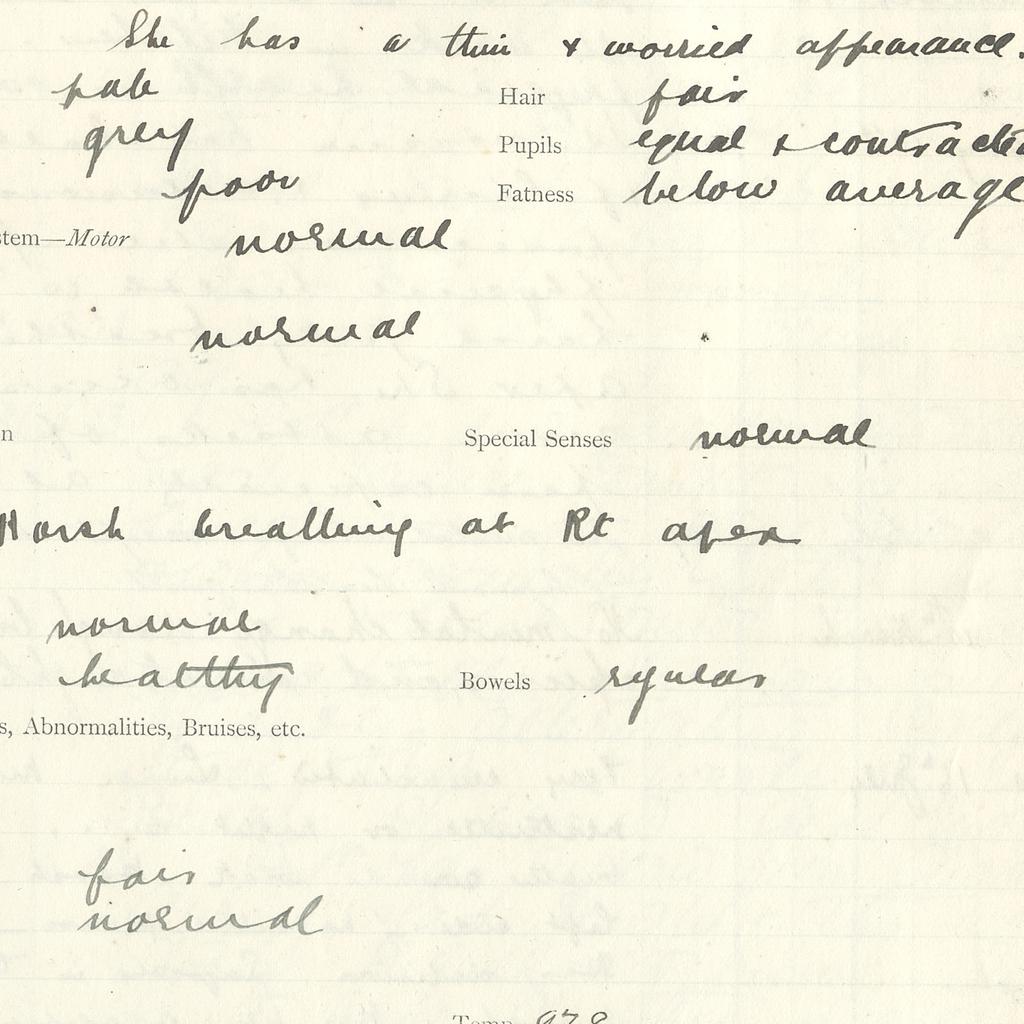 She has a thin & worried appearance.
pale Hair fair
grey Pupils equal & contracted
poor Fatness below average
stem—Motor normal
normal
n Special Senses normal
Harsh breathing at Rt apex
normal
healthy Bowels regular
s, Abnormalities, Bruises, etc.
fair
normal
Temp